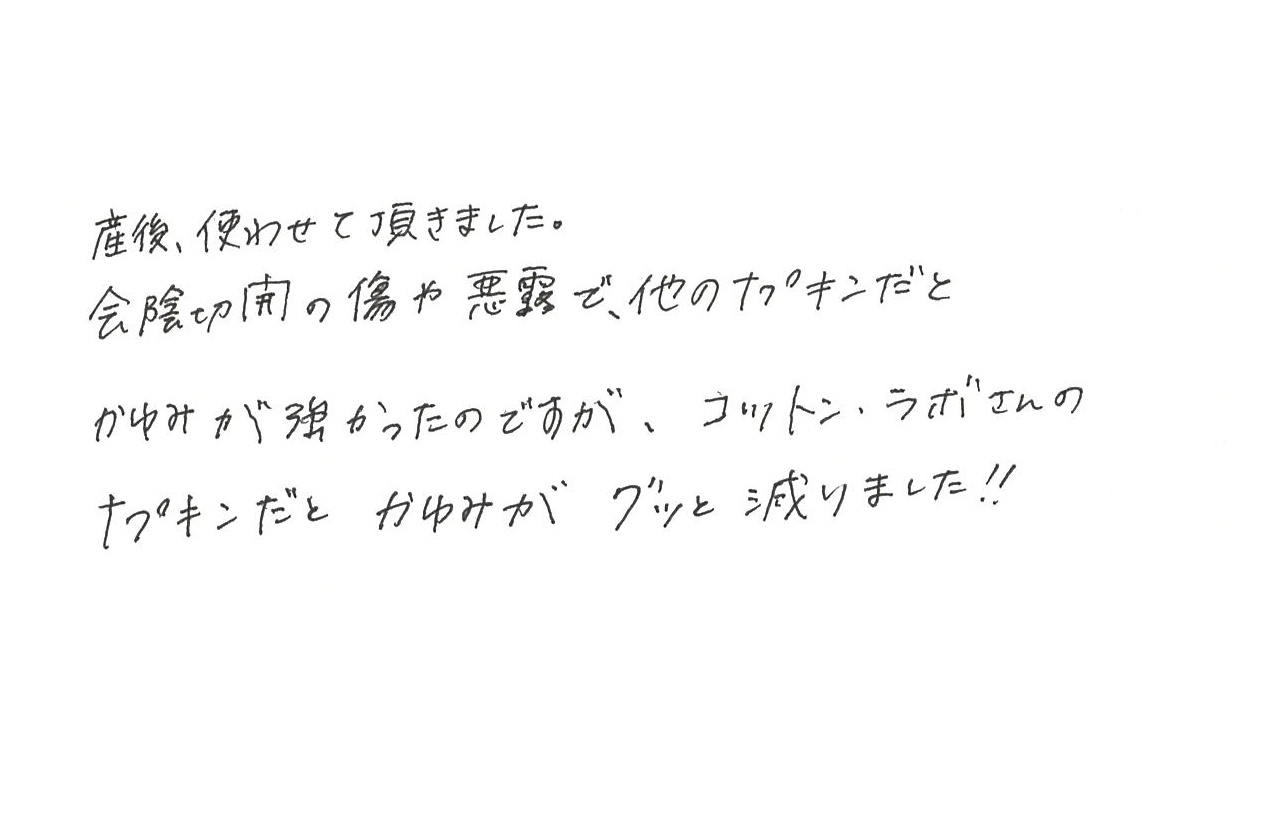 産後、使わせて頂きました。
会陰切開の傷や悪露で、他のナプキンだと
かゆみが強かったのですが、コットン・ラボさんの
ナプキンだと かゆみが グッと減りました!!